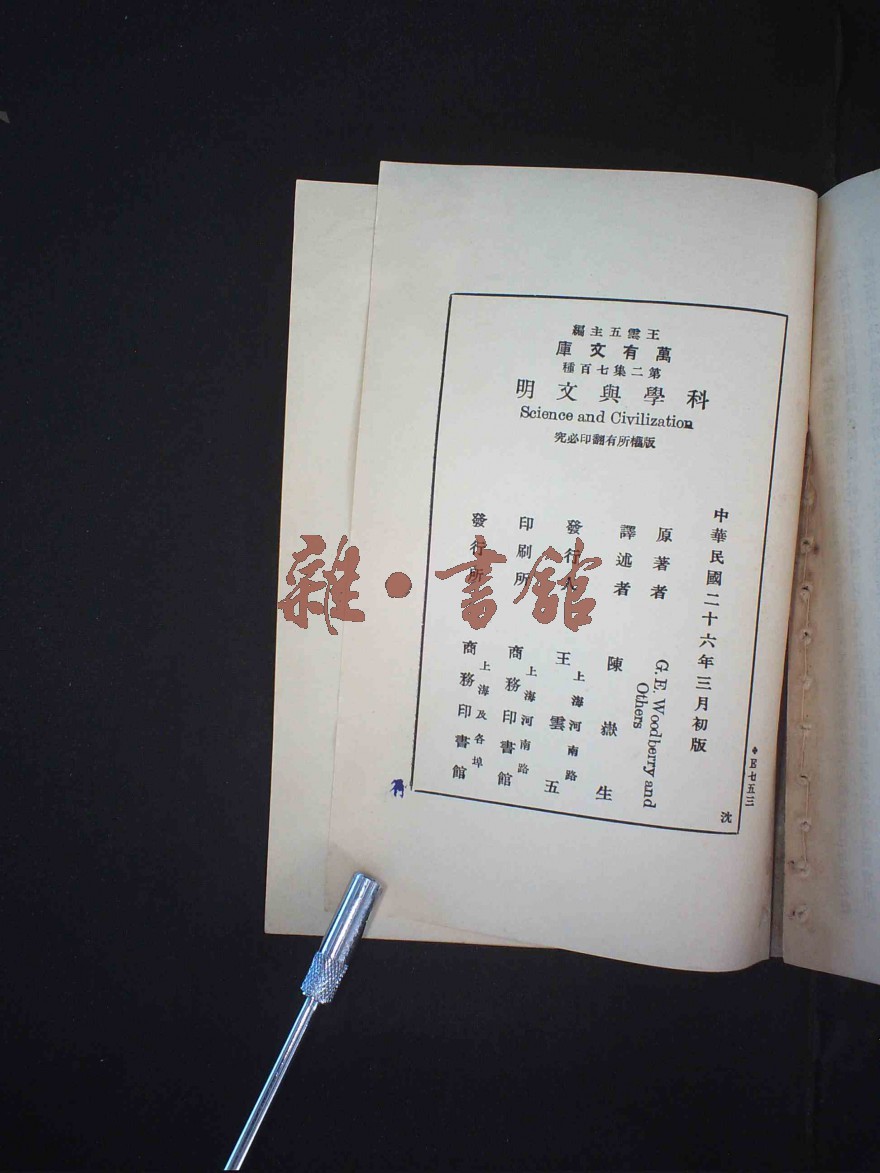 王雲五主編
萬有文庫
第二集七百種
科學與文明
Science and Civilization
版權所有翻印必究
中華民國二十六年三月初版
原著者 G. E. Woodberry and Others
譯述者 陳嶽生
發行人 王雲五
上海河南路
印刷所 商務印書館
上海河南路
發行所 商務印書館
上海及各埠
E七五三
沈
雜·書館